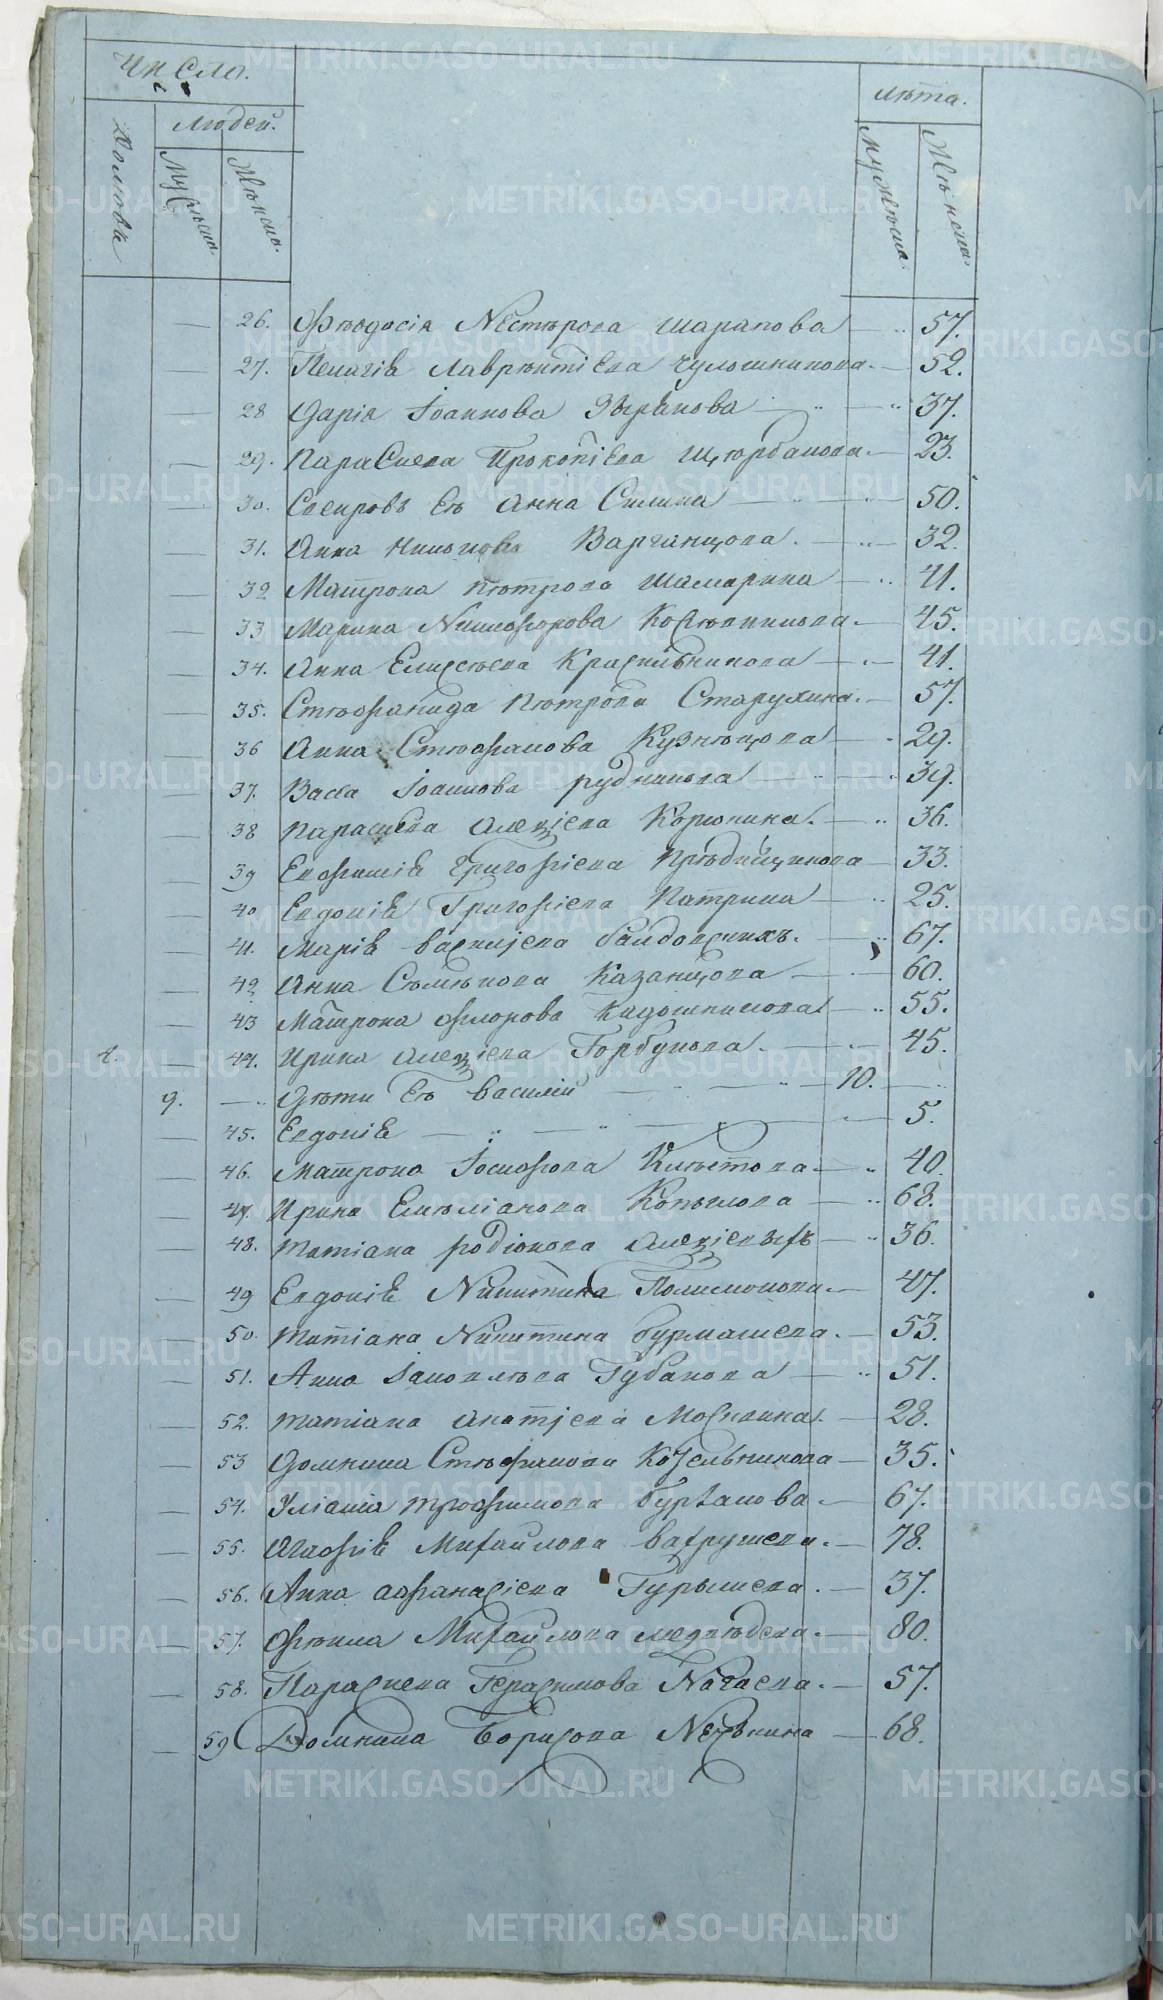 Число.
Людей.
Домовъ
Мужеска.
Женска.
лѣта.
мужеска.
Женска.
26. Ѳеодосія Нестерова Шарапова — 57.
27. Пелагія Лаврентіева Чулошникова — 52.
28 Дарія Іоаннова Зырянова — 37.
29. Параскева Прокопіева Щербакова — 23.
30. Свекровь Ея Анна Силина — 50.
31. Анна Варганцова. — 32.
32 Матрона Петрова Шамарина — 41.
33 Марина Никифорова — 45.
34. Анна Елисеева Красильникова — 41.
35. Стефанида Петрова Старухина. — 57.
36 Анна Стефанова Кузнецова — 29.
37. Васса Іоаннова Рудникова — 39.
38 Параскева Алексіева Корюкина. — 36.
39 Евфимія Григоріева — 33.
40 Евдокія Григоріева Патрина — 25.
41. Марія Василіева — 67.
42 Анна Семенова Казанцова — 60.
43 Матрона Флорова — 55.
1. 44. Ирина Алексіева Горбунова. — 45.
9. — Дѣти Ея Василій — 10. —
45. Евдокія — 5.
46. Матрона Іосифова — 40.
47. Ирина Емеліанова Копылова — 68.
48. Татіана Родіонова Алексіевыхъ — 36.
49 Евдокія Никитина — 47.
50. Татіана Никитина Бурмашева. — 53.
51. Анна Іаковлева Губанова — 51.
52. Татіана Москвина. — 28.
53 Домника Стефанова Котельникова — 35.
54. Уліанія Трофимова — 67.
55. Агафія Михайлова Вахрушева. — 78.
56. Анна Афанасіева Гурьшева. — 37.
57. Фекла Михайлова Медведева. — 80.
58. Параскева Герасимова — 57.
59 Домника Борисова — 68.
METRIKI.GASO-URAL.RU